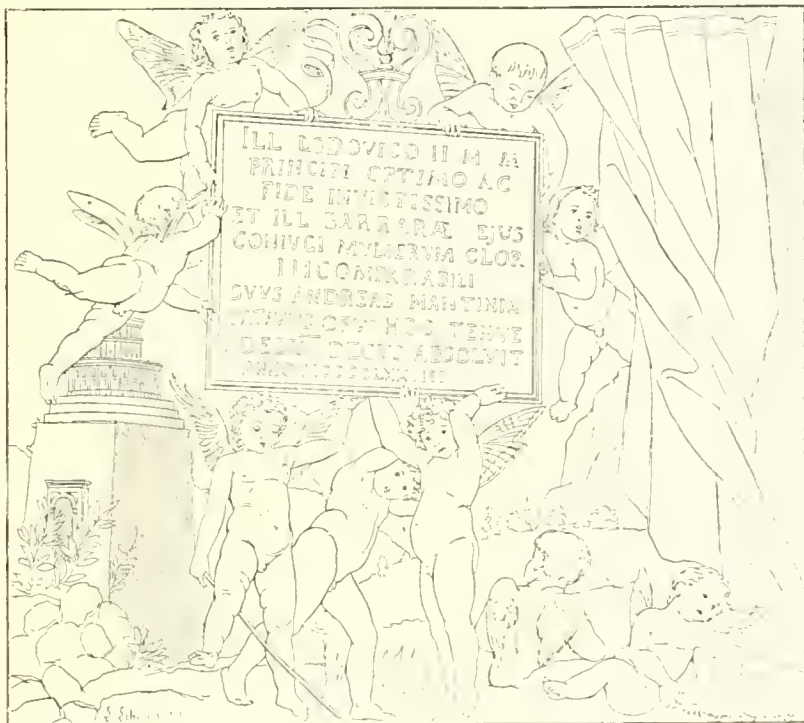 ILL LODOVICO II M M
PRINCIPI OPTIMO AC
FIDE INVICTISSIMO
ET ILL BARBARÆ EJUS
CONIVGI MVLIERVM GLOR
INCOMPARABILI
SVVS ANDREAS MANTINIA
PATAVVS OPVS HOC TENVE
DECVS ABSOLVIT
ANNO